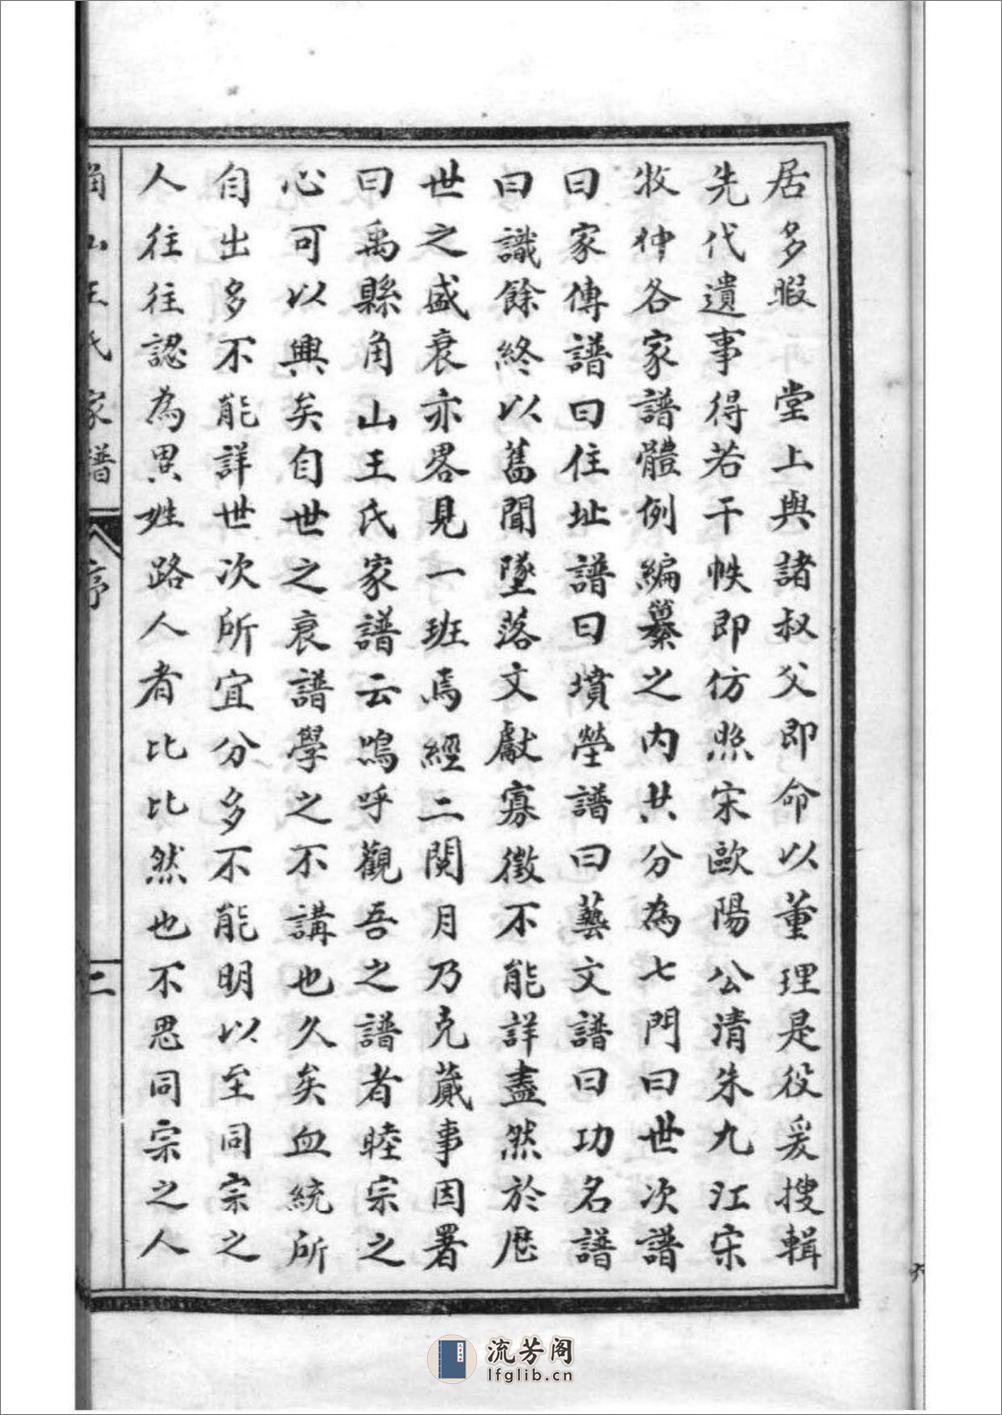 居多暇　堂上與諸叔父即命以董理是役爰搜輯
先代遺事得若干帙即仿照宋歐陽公清朱九江宋
牧仲各家譜體例編纂之內共分為七門曰世次譜
曰家傳譜曰住址譜曰墳塋譜曰藝文譜曰功名譜
曰識餘終以舊聞墜落文獻寡徵不能詳盡然於歷
世之盛衰亦畧見一班焉經二閱月乃克蕆事因署
曰禹縣角山王氏家譜云嗚呼觀吾之譜者睦宗之
心可以興矣自世之衰譜學之不講也久矣血統所
自出多不能詳世次所宜分多不能明以至同宗之
人往往認為異姓路人者比比然也不思同宗之人
角山王氏家譜　序　二
流芳阁
lfglib.cn